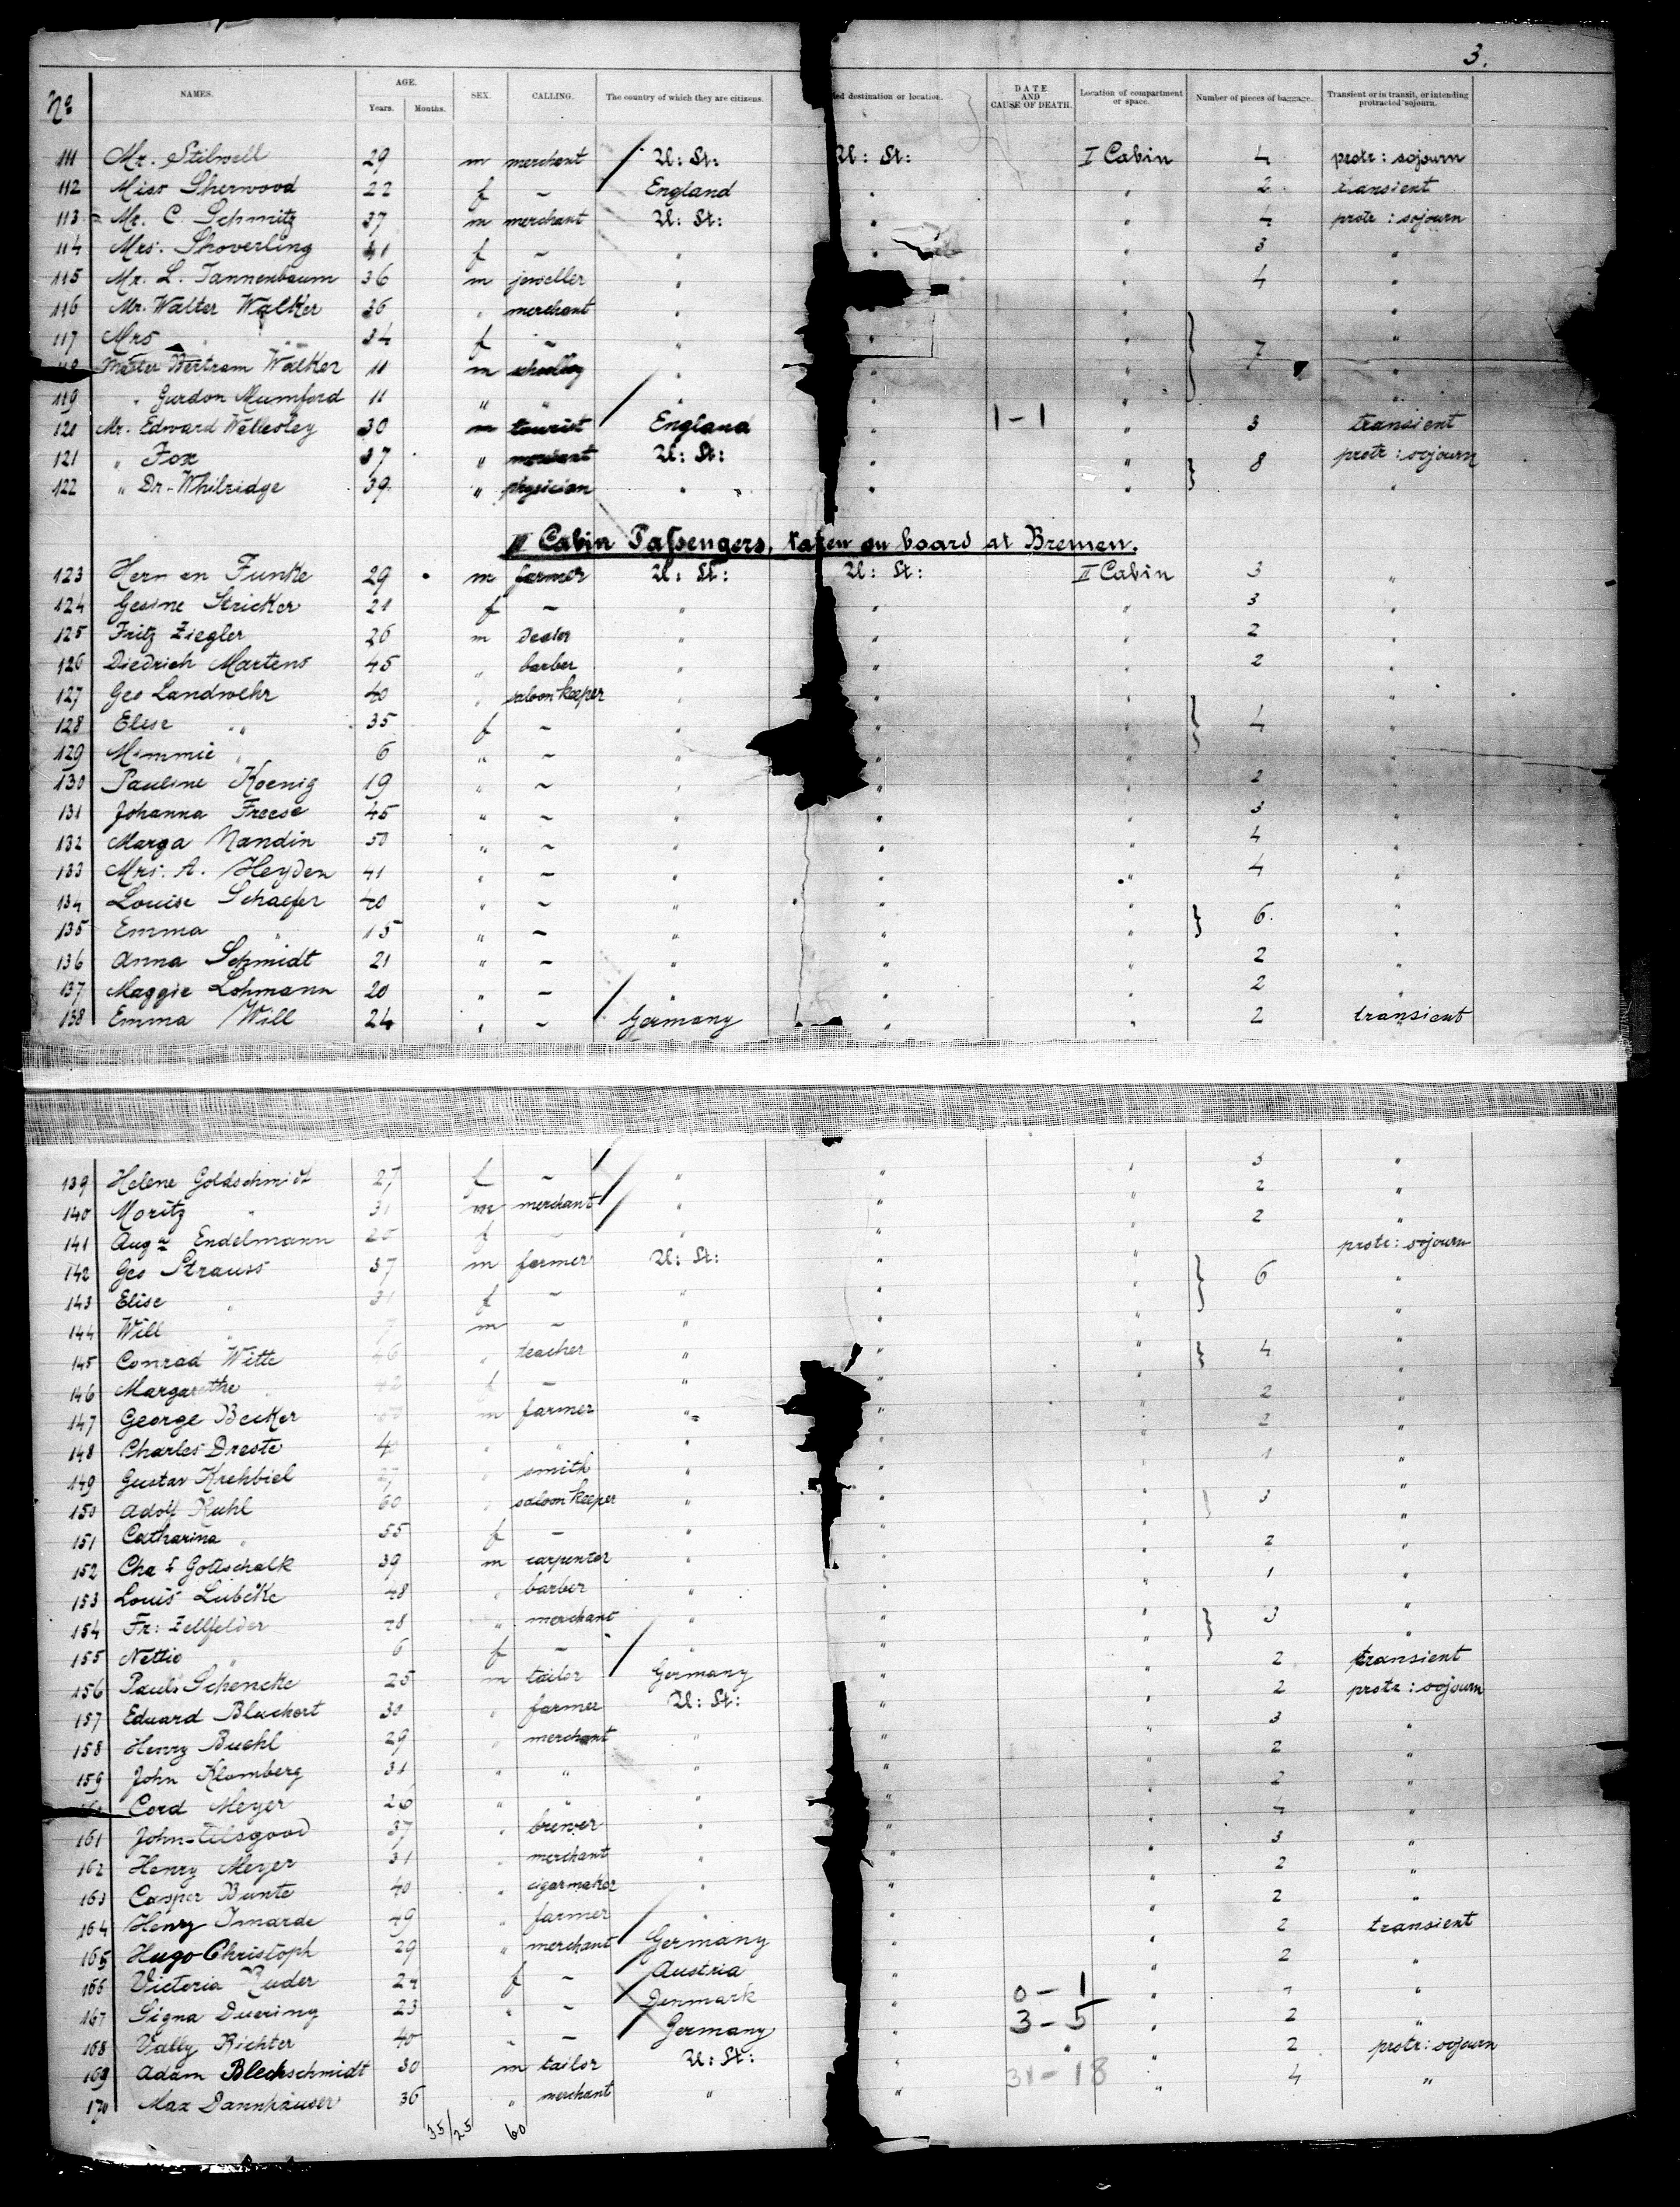 3.
No NAMES. AGE. Years. Months. SEX. CALLING. The country of which they are citizens. destination or location. DATE AND CAUSE OF DEATH. Location of compartment or space. Number of pieces of baggage. Transient or in transit, or intending protracted sojourn.
111 Mr. Stilwell 29 m merchant U: St: U: St: I Cabin 4 protr: sojourn
112 Miss Sherwood 22 f – England " " 2 transient
113 Mr. C. Schmitz 37 m merchant U: St: " " 4 protr: sojourn
114 Mrs. Shoverling 41 f – " " " 3 "
115 Mr. L. Tannenbaum 36 m jeweller " " 4 "
116 Mr. Walter Walker 36 " merchant " " "
117 Mrs " " 34 f – " " " } 7 "
Master Bertram Walker 11 m " " " "
119 " Gurdon Mumford 11 " " " " "
120 Mr. Edward Wellesley 30 m tourist England " 1-1 " 3 transient
121 " Fox 37 " U: St: " " } 8 protr: sojourn
122 " Dr. Whilridge 39 " physician " " " "
II Cabin Passengers, taken on board at Bremen.
123 Herman Funke 29 m farmer U: St: U: St: II Cabin 3 "
124 Gesine Stricker 21 f – " " " 3 "
125 Fritz Ziegler 26 m Dealer " " " 2 "
126 Diedrich Martens 45 " barber " " " 2 "
127 Geo Landwehr 40 " saloon keeper " " " "
128 Elise " 35 f – " " " } 4 "
129 Mammie " 6 " – " " "
130 Pauline Koenig 19 " – " " 2 "
131 Johanna Freese 45 " – " " " 3 "
132 Marga Nandin 50 " – " " " 4 "
133 Mrs. A. Heyden 41 " – " " " 4 "
134 Louise Schaefer 40 " – " " " } 6. "
135 Emma " 15 " – " " " "
136 Anna Schmidt 21 " – " " " 2 "
137 Maggie Lohmann 20 " – " " " 2 "
138 Emma Will 24 " – Germany " " 2 transient
139 Helene Goldschmidt 27 f – " " " 3 "
140 Moritz " 31 m merchant " " " 2 "
141 Auga Endelmann f – " " " 2 "
142 Geo Strauss 37 m farmer U: St: " " } 6 protr: sojourn
143 Elise " 31 f – " " " "
144 Will " 7 m – " " " "
145 Conrad Witte 46 " teacher " " " } 4 "
146 Margarethe " f – " " " "
147 George Becker m farmer " " " 2 "
148 Charles Dreste " " " " " 2 "
149 Gustav Krehbiel " smith " " " 1 "
150 Adolf Kuhl 60 " saloon keeper " " " } 3 "
151 Catharina " 55 f – " " " "
152 Chas Gottschalk 39 m carpenter " " " 2 "
153 Louis Lubcke 48 " barber " " " 1 "
154 Fr: Zellfelder " merchant " " " } 3 "
155 Nettie " 6 f – " " " "
156 Paul Schencke 25 m tailor Germany " " 2 transient
157 Eduard Bluchert 30 " farmer U: St: " " 2 protr: sojourn
158 Henry Buehl 29 " merchant " " " 3 "
159 John Klomberg 31 " " " " " 2 "
Cord Meyer 26 " " " " " 2 "
161 John 37 " brewer " " " 4 "
162 Henry Meyer 31 " merchant " " " 3 "
163 Casper Bunte 40 " cigarmaker " " " 2 "
164 Henry Imarde 49 " farmer " " " 2 "
165 Hugo Christoph 29 " merchant Germany " " 2 transient
166 Victoria Ruder 24 f – Austria " " 2 "
167 Signa Duering 23 " – Denmark " 0-1 " "
168 Vally Richter 40 " – Germany " 3-5 " 2 "
169 Adam Blechschmidt 30 m tailor U: St: " " 2 protr: sojourn
170 Max Dannhäuser 36 " merchant " " 31-18 " 4 "
35/25 60